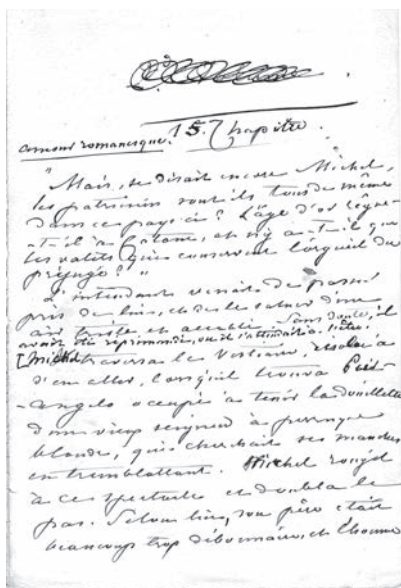 amour romanesque. 15. Chapitre.
"Mais, se disait encore Michel,
les patriciens sont ils tous de même
dans ce pays ci? L'âge d'or règne-
-t-il à Catane, et n'y a-t-il que
les valets qui conservent l'orgueil du
préjugé?"
L'intendant venait de passer
près de lui, et de le saluer d'un
air triste et accablé. Sans doute, il
avait été réprimandé, ou il s'attendait à l'être.
Michel traversa le vestiaire, résolu à
s'en aller, lorsqu'il trouva Pier-
-Angelo occupé à tenir la douillette
d'un vieux seigneur à perruque
blonde, qui cherchait ses manches
en tremblottant. Michel rougit
à ce spectacle et doubla le
pas. Selon lui, son père était
beaucoup trop débonnaire, et l'homme